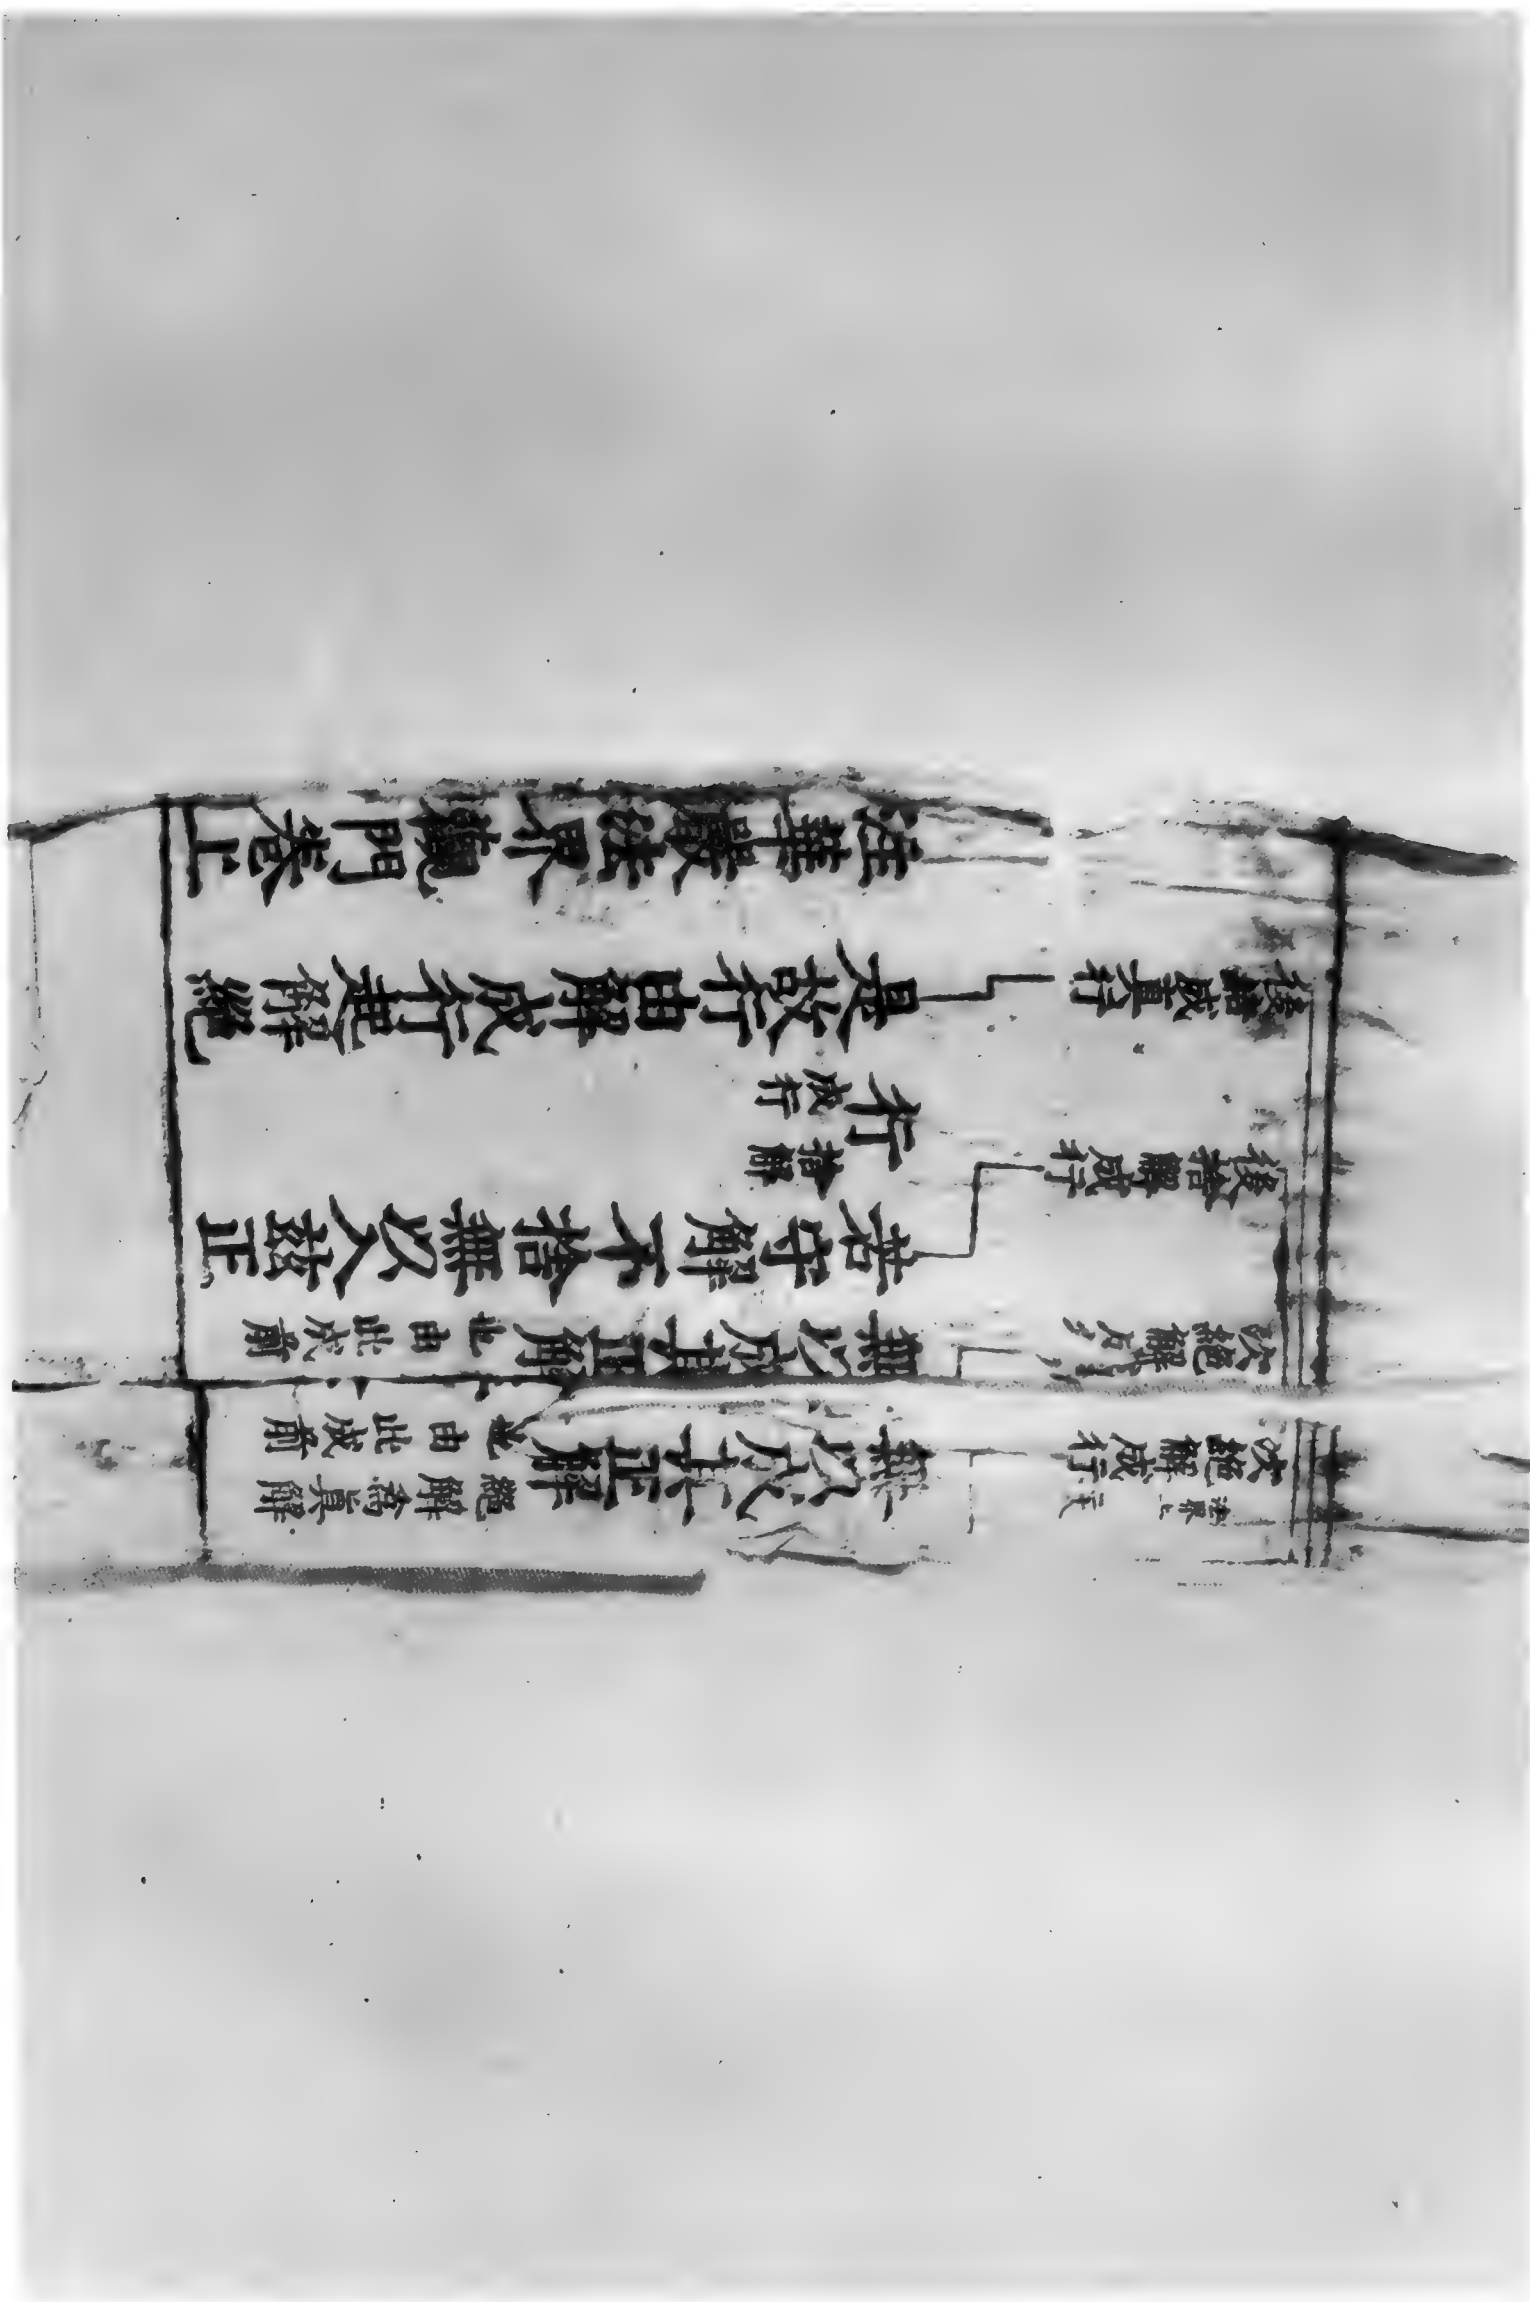 次絕解成行
無以成其正解絕解為真解
也由此成前
次絕解
無以成其正解
也由此成前
後捨解成行
若守解不捨無以入茲正
行捨解
成行
後結成真行
是故行由解成行起解絕
注華嚴法界觀門卷上